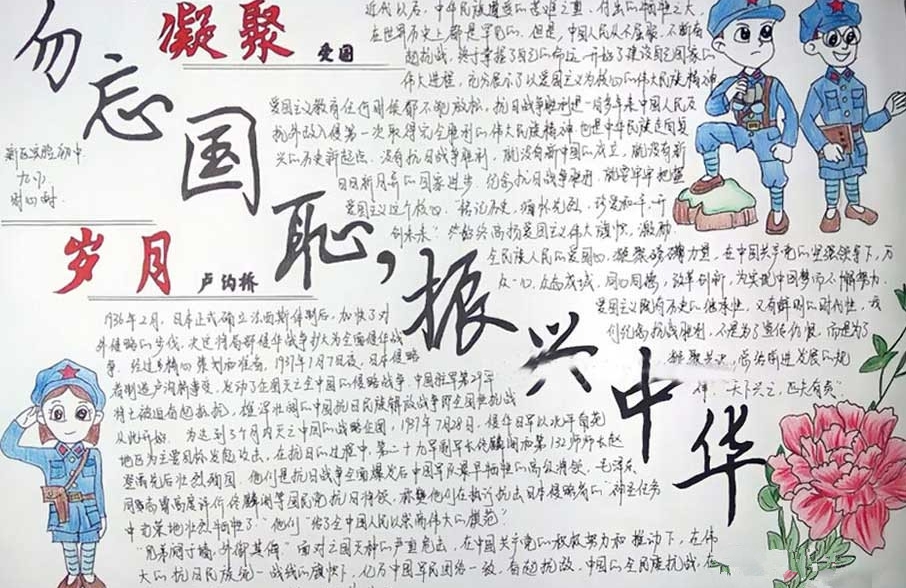 勿忘国耻，振兴中华
凝聚 爱国
近代以后，中华民族遭受的苦难之重，付出的牺牲之大，
在世界历史上都是罕见的。但是，中国人民从不屈服，不断奋
起抗战，终于掌握了自己的命运，开始了建设自己国家的
伟大进程，充分展示了以爱国主义为核心的伟大民族精神
爱国主义教育任何时候都不能放松，抗日战争胜利是一百多年来中国人民反
抗外敌入侵第一次取得完全胜利的伟大民族精神，也是中华民族走向复
兴的历史新起点。没有抗日战争胜利，就没有新中国的成立，就没有新
日异新月异的国家进步。纪念抗日战争胜利，就要牢牢把握
爱国主义这个核心。“铭记历史，缅怀先烈，珍爱和平，开
创未来”。始终高扬爱国主义伟大旗帜，激励
全民族人民的爱国心，凝聚磅礴力量，在中国共产党的坚强领导下，万
众一心，众志成城，同心同德，改革创新，为实现中国梦而不懈努力
爱国主义既有历史的继承性，又有鲜明的时代性，我
们纪念抗战胜利，不是为了宣传仇恨，而是为了
凝聚共识，总结前进发展的规
律，天下兴亡，匹夫有责”
新区实验初中
岁月 卢沟桥
1936年2月，日本正式确立法西斯体制后，加快了对
外侵略的步伐，决定将局部侵华战争扩大为全面侵华战
争。经过多精心策划而准备，1937年7月7日夜，日本侵略
者制造卢沟桥事变，发动了企图灭亡全中国的侵略战争。中国驻军第29军
将士被迫奋起抵抗，雄浑壮阔的中国抗日民族解放战争即全国性抗战
从此开始。为达到3个月内灭亡中国的战略企图，1937年7月28日，侵华日军以北平南苑
地区为主要目标发起攻击，在抗日的过程中，第二十九军副军长佟麟阁和第132师师长赵
登禹先后壮烈殉国，他们是抗日战争全面爆发后中国军队最早牺牲的高级将领。毛泽东
同志曾高度评价佟麟阁等国民党抗日将领，称赞他们在执行抗击日本侵略者的“神圣任务
中英勇地壮烈牺牲了”他们“给了全中国人民以崇高伟大的模范”
“兄弟阋于墙，外御其侮”面对亡国灭种的严重危机，在中国共产党的积极努力和推动下，在伟
大的抗日民族统一战线的旗帜下，亿万中国军民团结一致，奋起抗敌，中国的全民族抗战，在